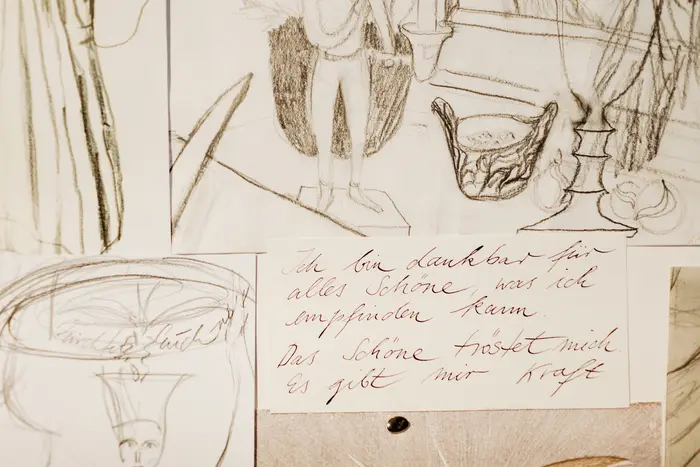 Ich bin dankbar für
alles Schöne, was ich
empfinden kann.
Das Schöne tröstet mich.
Es gibt mir Kraft